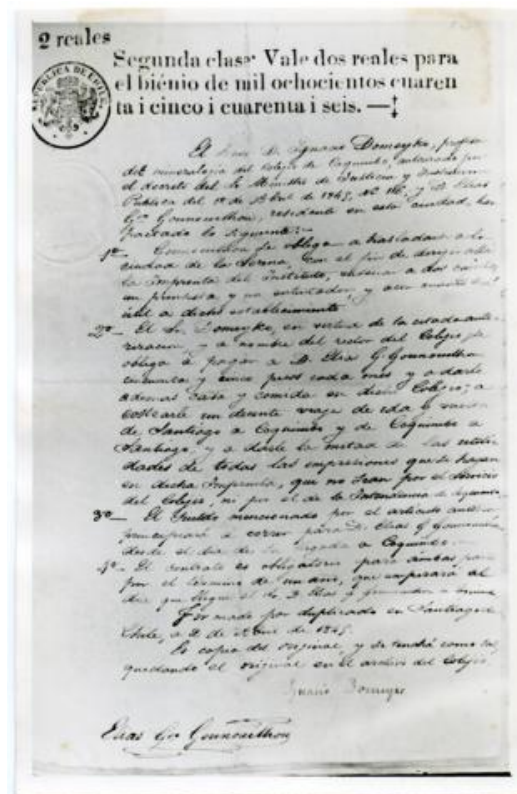 2 reales
Segunda clase Vale dos reales para
el biénio de mil ochocientos cuaren
ta i cinco i cuarenta i seis. —
El D. Ignacio Domeyko, profesor
de mineralogía del Colegio de Coquimbo, autorizado por
el decreto del Ministro de Justicia e Instrucción
Publica del 1º de Abril de 1845, y D. Elias
Gounouilhou, residente en esta ciudad, han
pactado lo siguiente:
1º Gounouilhou se obliga a trasladarse a la
ciudad de la Serena, con el fin de
la Imprenta del Instituto, enseñar a dos
un prensista y un
util a dicho establecimiento
2º — El Sr. Domeyko, en virtud de la citada auto-
rizacion y a nombre del rector del Colegio se
obliga a pagar a D. Elias G. Gounouilhou
cincuenta y cinco pesos cada mes y a darle
ademas casa y comida en dicho Colegio; a
costearle un decente viaje de ida y
de Santiago a Coquimbo y de Coquimbo a
Santiago, y a darle la mitad de las utili-
dades de todas las impresiones que se hagan
en dicha Imprenta, que no sean por el servicio
del Colegio, ni por el de la Intendencia de
3º — El sueldo mencionado por el articulo anterior
principiará a correr para D. Elias G. Gounouilhou
desde el dia de su llegada a Coquimbo.
4º — El contrato es obligatorio para ambas partes
por el termino de un año, que empezará el
dia que llegue el D. Elias G. Gounouilhou a
Formado por duplicado en Santiago de
Chile, a 2 de de 1845.
Es copia del original, y se tendrá como tal
quedando el original en el archivo del Colegio.
Ignacio Domeyko
Elias Gounouilhou